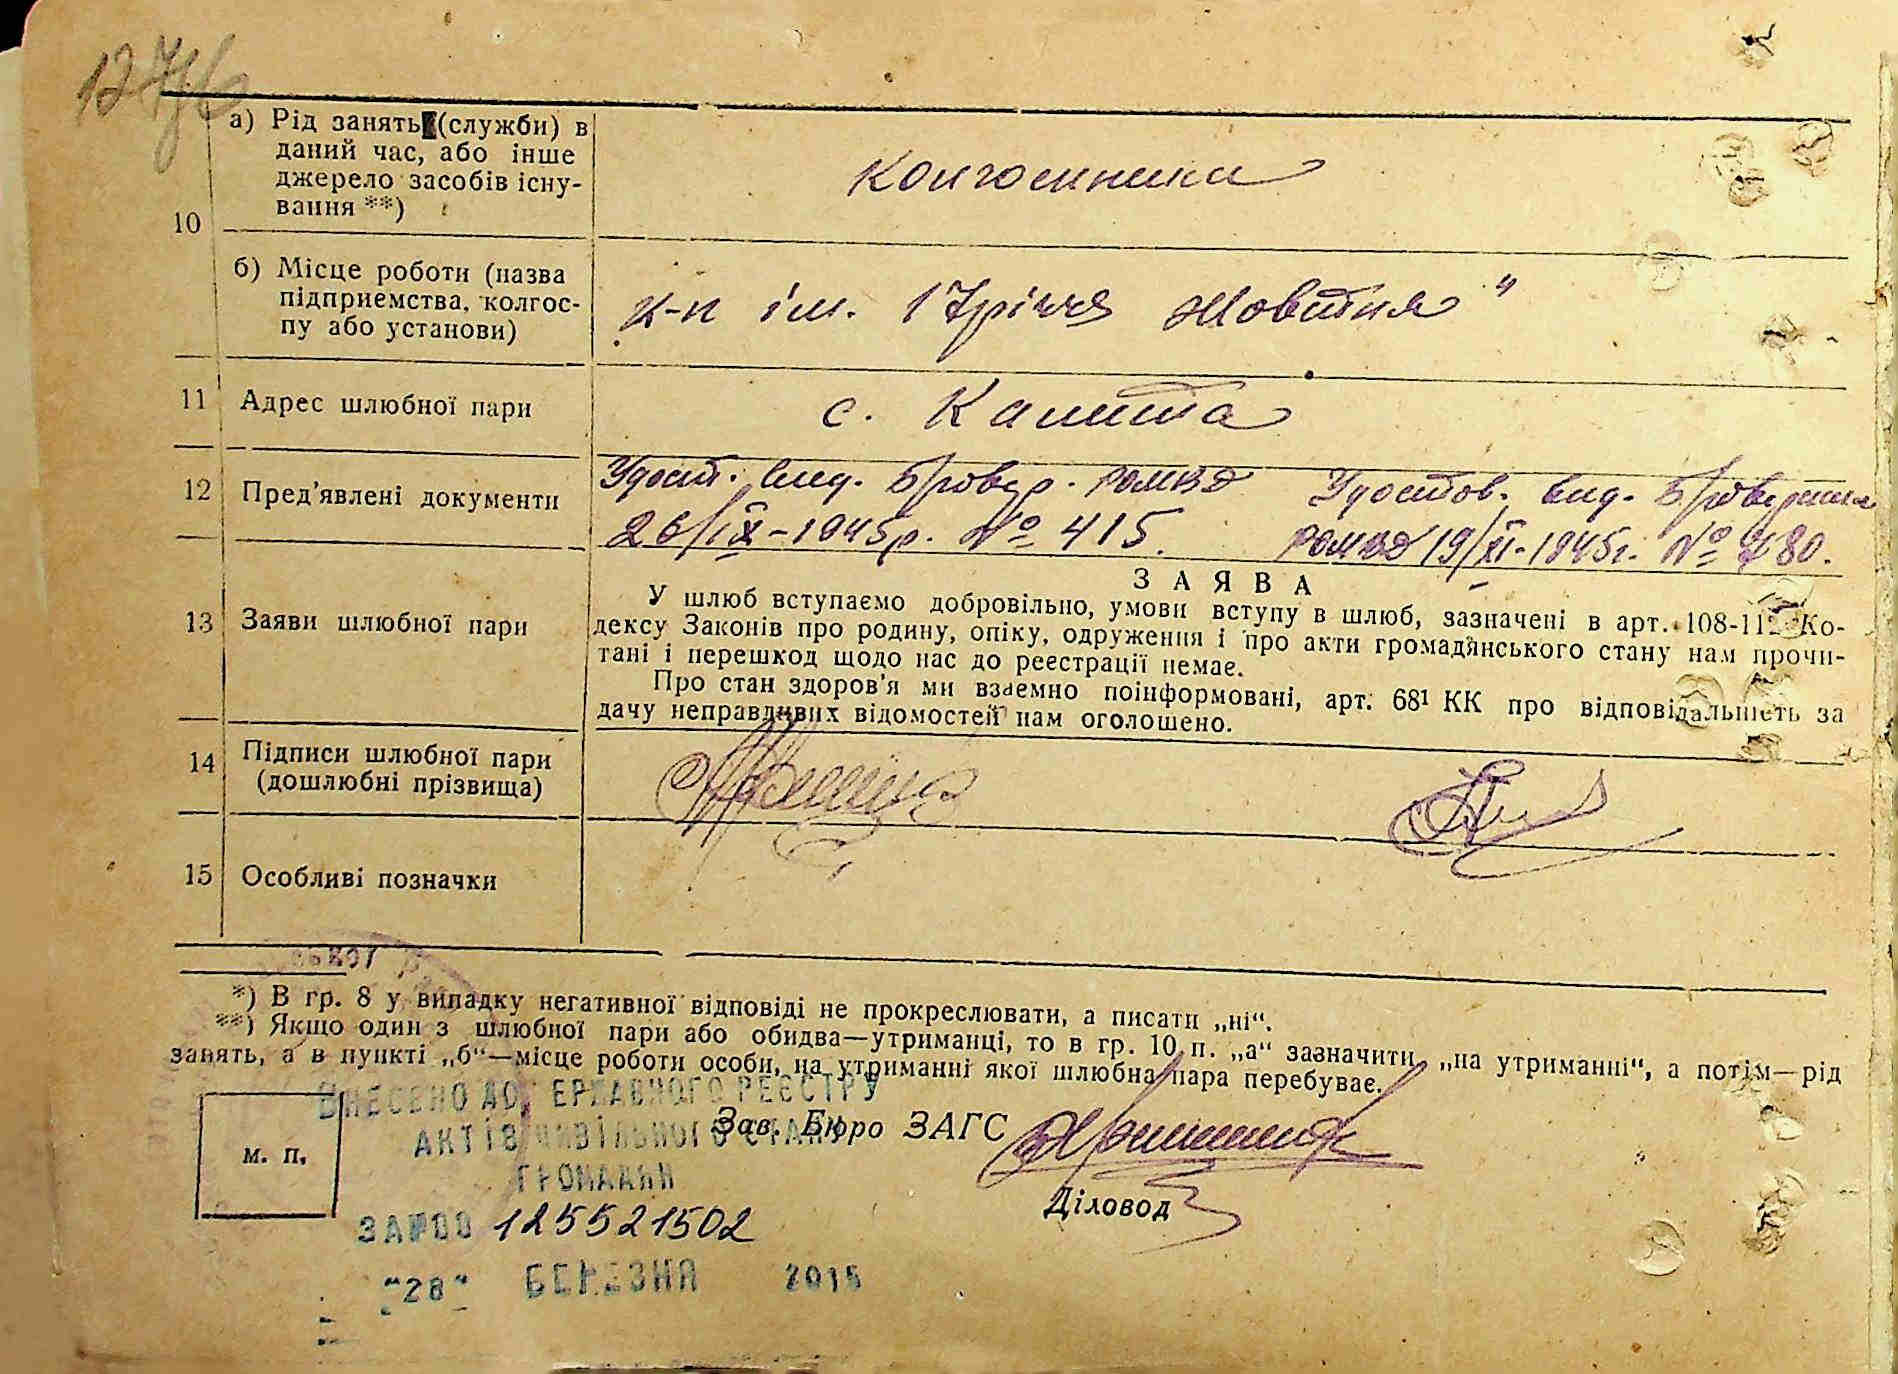 а) Рід занять (служби) в
даний час, або інше
джерело засобів існу-
вання **)
10
Колгоспники
б) Місце роботи (назва
підприємства, колгос-
пу або установи)
к-п ім. 17річчя Жовтня"
11 Адрес шлюбної пари
с. Калита
12 Пред'явлені документи
Удост. вид. Бровар. РОМВД
26/IX-1945р. № 415.
Удостов. вид. Броварским
РОМВД 19/XI-1945г. № 780.
13 Заяви шлюбної пари
ЗАЯВА
У шлюб вступаємо добровільно, умови вступу в шлюб, зазначені в арт. 108-112 Ко-
дексу Законів про родину, опіку, одруження і про акти громадянського стану нам прочи-
тані і перешкод щодо нас до реєстрації немає.
Про стан здоров'я ми взаємно поінформовані, арт. 68¹ КК про відповідальність за
дачу неправдивих відомостей нам оголошено.
14 Підписи шлюбної пари
(дошлюбні прізвища)
15 Особливі позначки
*) В гр. 8 у випадку негативної відповіді не прокреслювати, а писати „ні“.
**) Якщо один з шлюбної пари або обидва—утриманці, то в гр. 10 п. „а“ зазначити „на утриманні“, а потім—рід
занять, а в пункті „б“—місце роботи особи, на утриманні якої шлюбна пара перебуває.
ВНЕСЕНО ДО ДЕРЖАВНОГО РЕЄСТРУ
АКТІВ ЦИВІЛЬНОГО СТАНУ
ГРОМАДЯН
Зав. Бюро ЗАГС
м. п.
Діловод
ЗА №00 125521502
"28" БЕРЕЗНЯ 2015